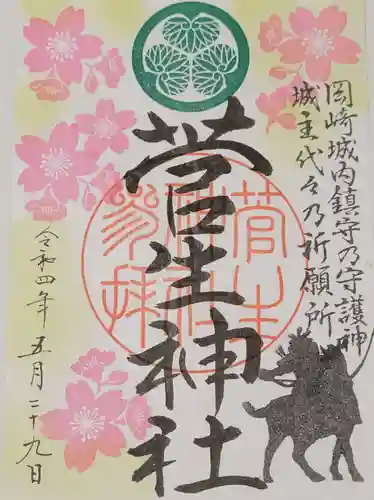 岡崎城内鎮守乃守護神
城主代々乃祈願所
菅生神社
参拝
菅生神社
令和四年五月二十九日